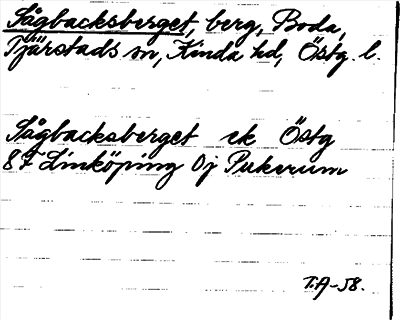 Sågbacksberget, berg, Boda,
Tjärstads sn, Kinda hd, Östg. l.
Sågbacksberget ek Östg
8 F Linköping 0j Pukerum
T.A-58.